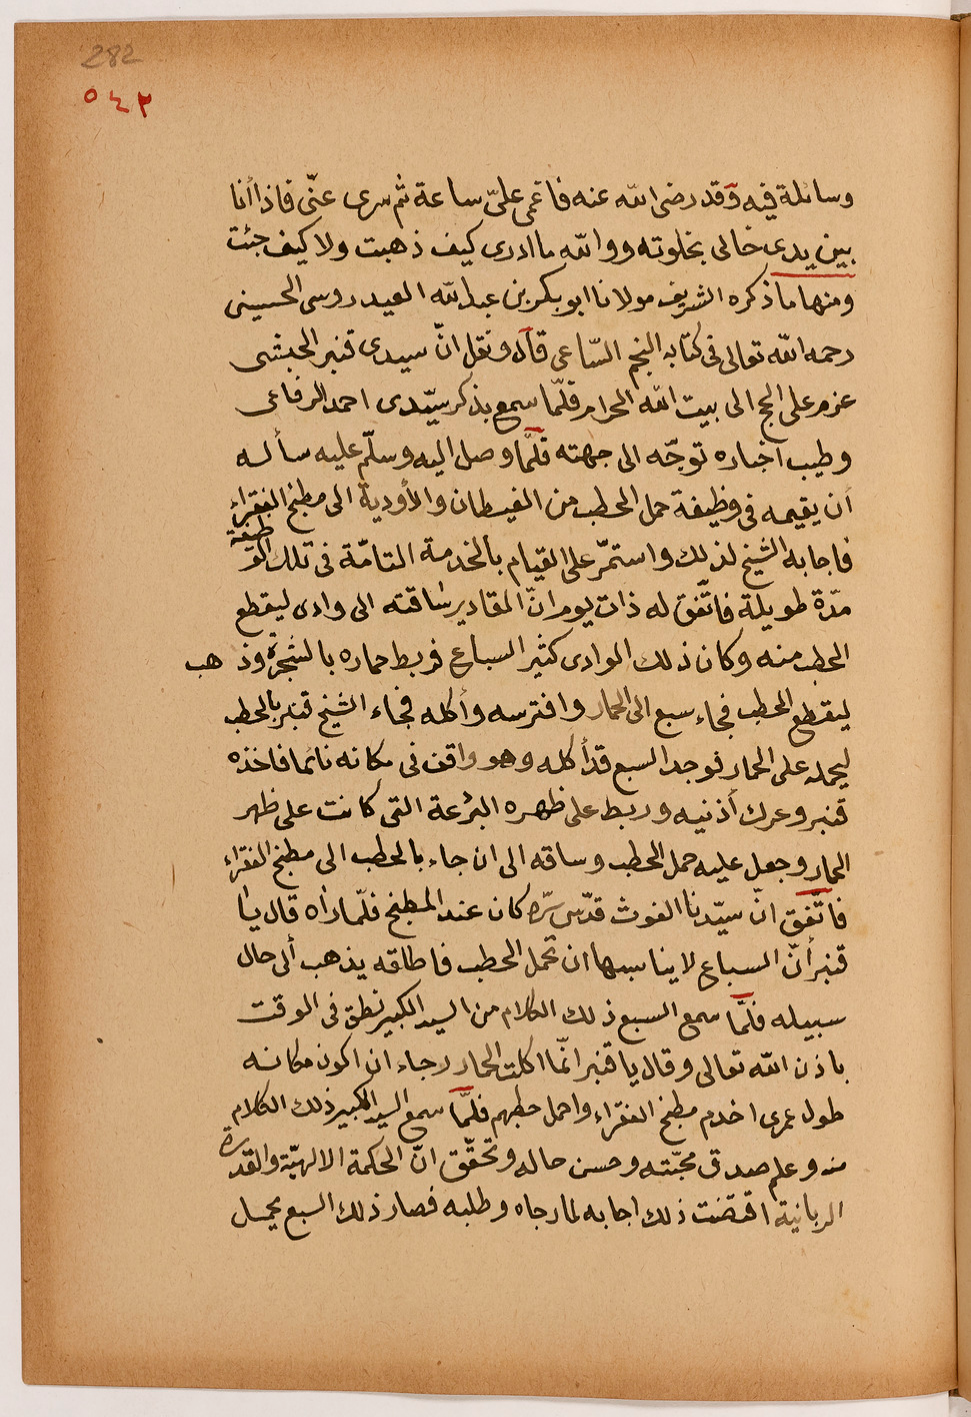 282
٥٤٢
وسائلة فيه وقد رضى الله عنه فاغمى علىّ ساعة ثم سرى عنّى فاذا أنا
بين يدى خالى بخلوته ووالله ما ادرى كيف ذهبت ولا كيف جئت
ومنها ما ذكره الشريف مولانا ابو بكر بن عبد الله العيدروسى الحسينى
رحمه الله تعالى فى كتابه النجم السّاعى قال ونقل انّ سيدى قنبر الحبشى
عزم على الحج الى بيت الله الحرام فلمّا سمع بذكر سيّدى احمد الرفاعى
وطيب اخباره توجّه الى جهته فلمّا وصل اليه وسلّم عليه سأله
أن يقيمه فى وظيفة حمل الحطب من الغيطان والأودية الى مطبخ الفقراء
فاجابه الشيخ لذلك واستمرّ على القيام بالخدمة التامّة فى تلك الوظيفة
مدّة طويلة فاتّفق له ذات يوم انّ المقادير ساقته الى وادى ليقطع
الحطب منه وكان ذلك الوادى كثير السباع فربط حماره بالشجرة وذهب
ليقطع الحطب فجاء سبع الى الحمار وافترسه وأكله فجاء الشيخ قنبر بالحطب
ليحمله على الحمار فوجد السبع قد أكله وهو واقف فى مكانه نائما فاخذه
قنبر وعرك أذنيه وربط على ظهره البرعة التى كانت على ظهر
الحمار وجعل عليه حمل الحطب وساقه الى ان جاء بالحطب الى مطبخ الفقراء
فاتّفق انّ سيّدنا الغوث قدّس سرّه كان عند المطبخ فلمّا رأه قال يا
قنبر أنّ السباع لا يناسبها ان تحمل الحطب فاطلقه يذهب ألى حال
سبيله فلمّا سمع السبع ذلك الكلام من السيد الكبير نطق فى الوقت
باذن الله تعالى وقال يا قنبر انّما اكلت الحمار رجاء ان اكون مكانه
طول عمرى اخدم مطبخ الفقراء واحمل حطبهم فلمّا سمع السيد الكبير ذلك الكلام
منه وعلم صدق محبّته وحسن حاله وتحقّق انّ الحكمة الالهيّة والقدرة
الربانية اقتضت ذلك اجابه لما رجاه وطلبه فصار ذلك السبع يحمل